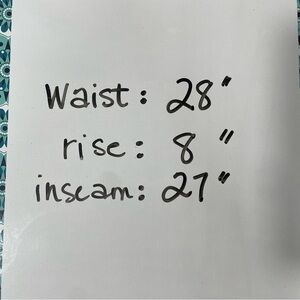 Waist: 28"
rise: 8"
inseam: 27"